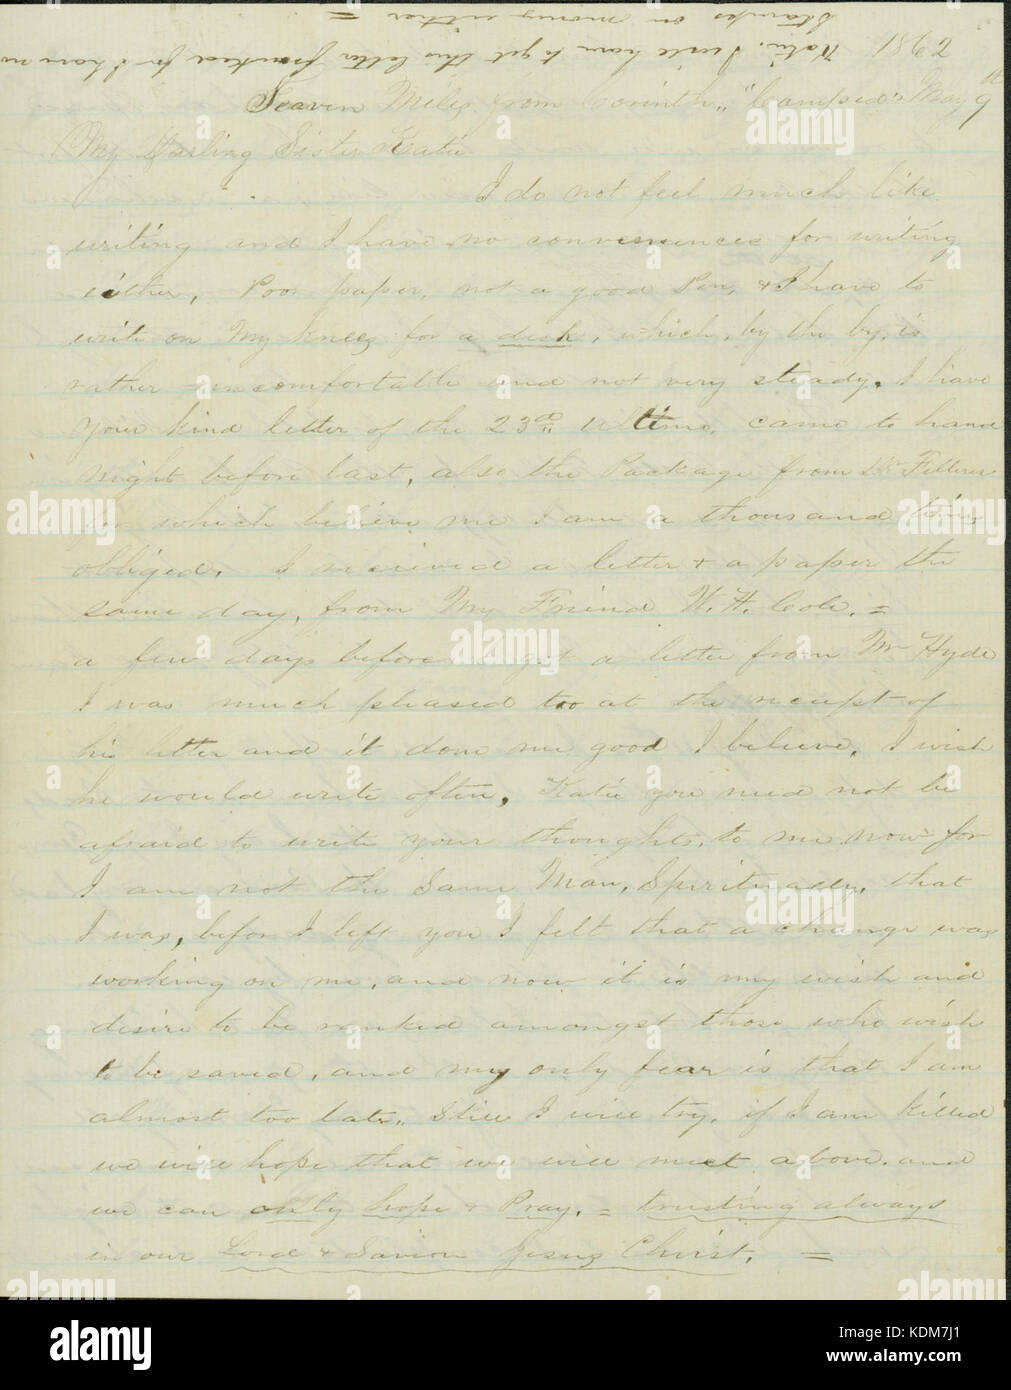 Katie. I will have to get this letter franked for I have no
Stamps or money either =
1862
Seaven Miles from Corinth, "Camped" May 9th
My Darling Sister Katie
I do not feel much like
writing and I have no conveniences for writing
either, Poor paper, not a good Pen, & I have to
write on My knees for a desk, which, by the by, is
rather uncomfortable and not very steady. I have
Your kind letter of the 23d ultimo, came to hand
night before last, also the Package from
for which believe me I am a thousand times
obliged. I received a letter & a paper the
same day, from My Friend W. H. Cole. =
a few days before I got a letter from Mr Hyde
I was much pleased too at the recept of
his letter and it done me good I believe, I wish
he would write often, Katie you need not be
afraid to write your thoughts, to me now for
I am not the Same Man, Spiritually, that
I was, befor I left you I felt that a change was
working on me, and now it is my wish and
desire to be ranked amongst those who wish
to be saved, and my only fear is that I am
almost too late, Still I will try, if I am killed
we will hope that we will meet above. and
we can only hope & Pray. = trusting always
in our Lord & Savior Jesus Christ. =
alamy
a
alamy
Image ID: KDM7J1
www.alamy.com